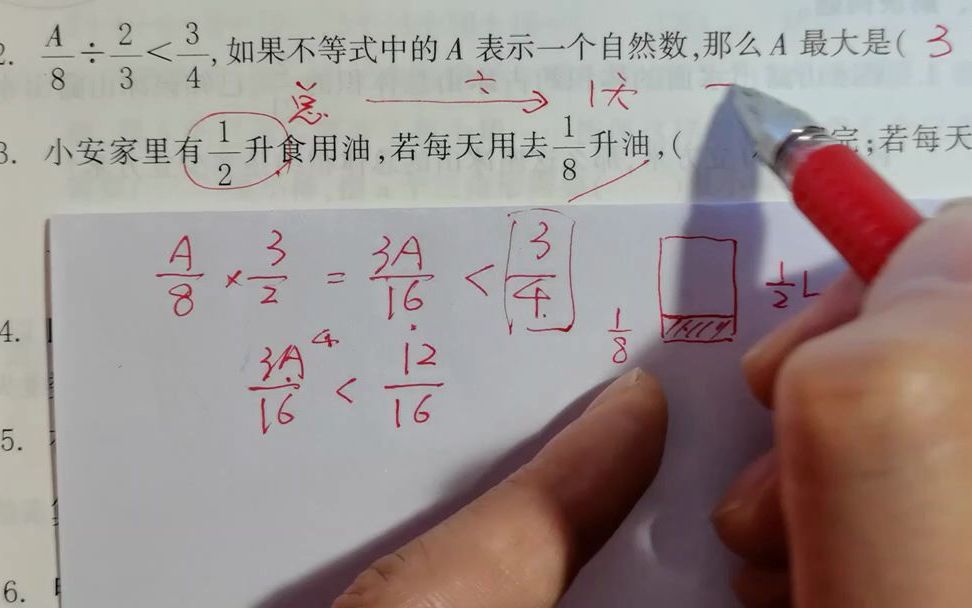 2. A/8 ÷ 2/3 < 3/4, 如果不等式中的 A 表示一个自然数,那么 A 最大是( 3
总 ÷ 1天
3. 小安家里有 1/2 升食用油,若每天用去 1/8 升油,( 完;若每天
A/8 × 3/2 = 3A/16 < 3/4
1/8 1/2 L
3A/16 4 < 12/16
4.
5.
6.